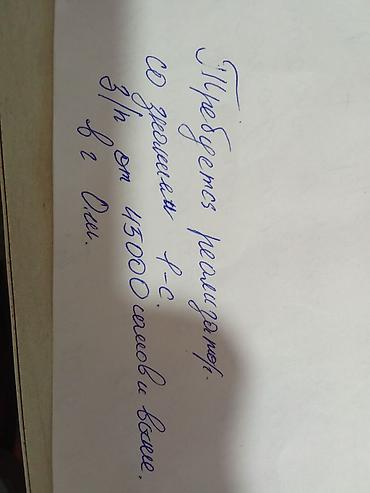 Требуется реализатор.
со знанием 1-С.
З/п от 45000 сомов и выше.
в г Ош.